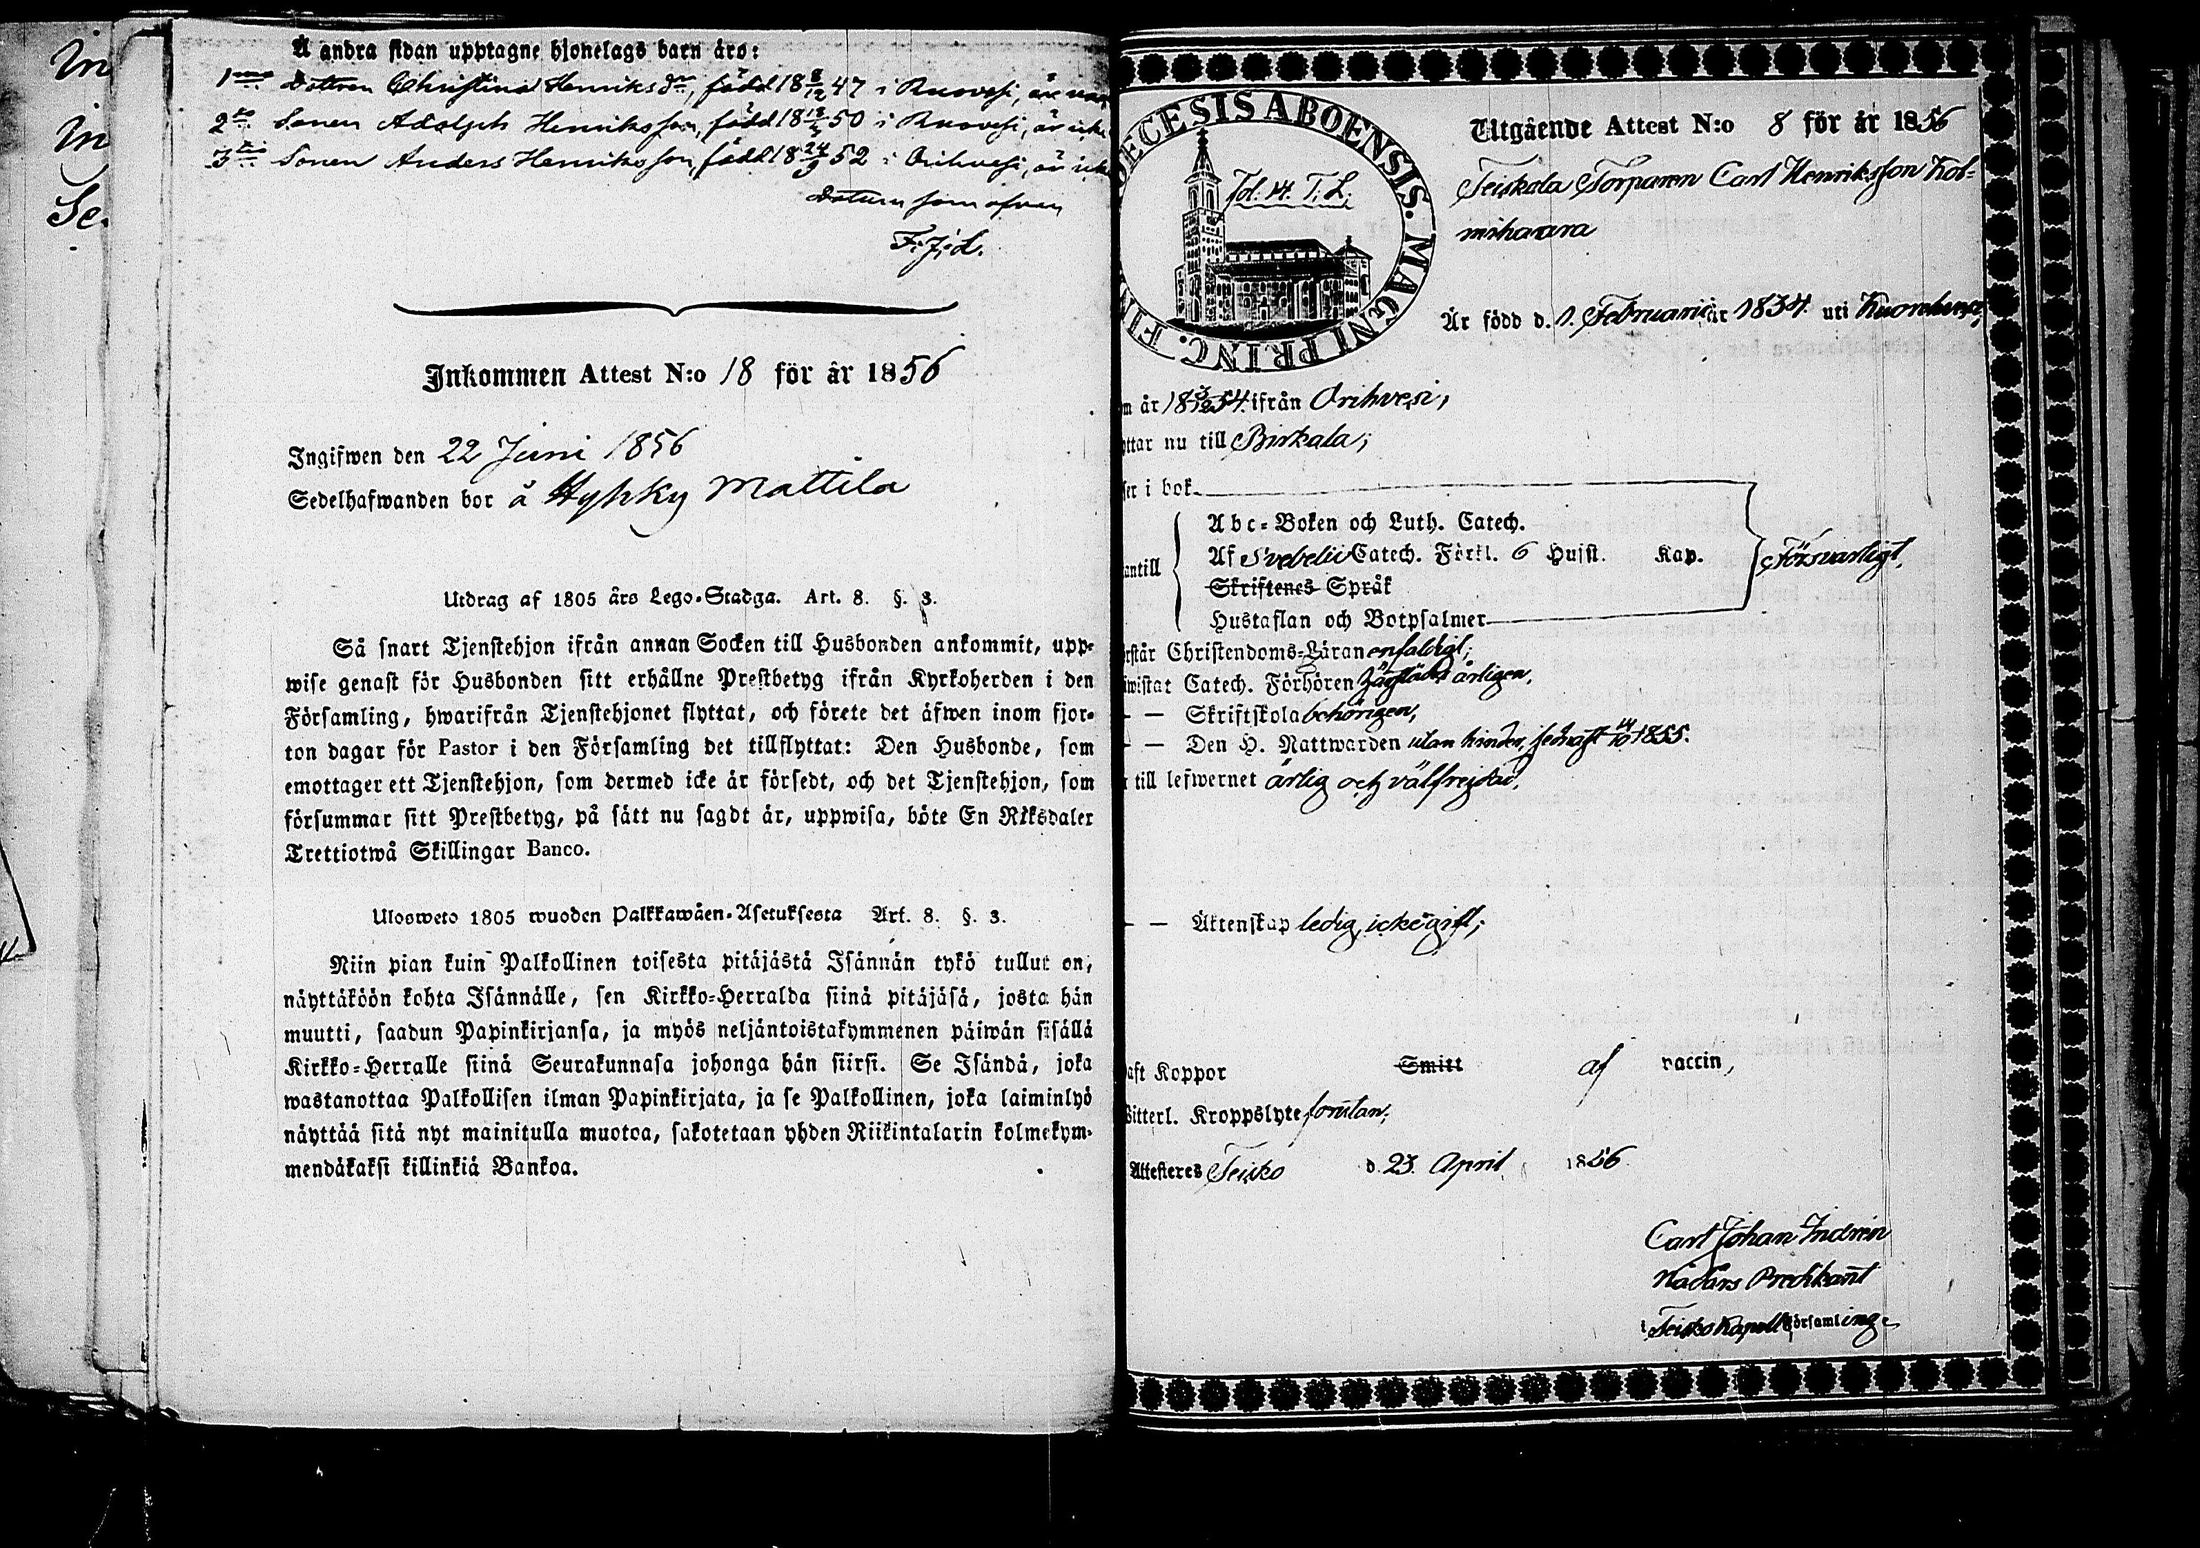 In
In
Se
Å andra sidan upptagne hjonelags barn äro:
1mo Dottren Christina Henriksdr, född 18 8/12 47 i Ruovesi, är
2do Sonen Adolph Henriksson, född 18 50 i Ruovesi, är icke
3tio Sonen Anders Henriksson, född 18 24/9 52 i Orihvesi, är icke
Datum som ofvan
F.J.L.
Inkommen Attest N:o 18 för år 1856
Ingifwen den 22 Juni 1856
Sedelhafwanden bor å Hyhky Mattila
Utdrag af 1805 års Lego-Stadga. Art. 8. §. 3.
Så snart Tjenstehjon ifrån annan Socken till Husbonden ankommit, upp-
wise genast för Husbonden sitt erhållne Prestbetyg ifrån Kyrkoherden i den
Församling, hwarifrån Tjenstehjonet flyttat, och förete det äfwen inom fjor-
ton dagar för Pastor i den Församling det tillflyttat: Den Husbonde, som
emottager ett Tjenstehjon, som dermed icke är försedt, och det Tjenstehjon, som
försummar sitt Prestbetyg, på sätt nu sagdt är, uppwisa, böte En Riksdaler
Trettiotwå Skillingar Banco.
Ulosweto 1805 wuoden Palkkawäen-Asetuksesta Art. 8. §. 3.
Niin pian kuin Palkollinen toisesta pitäjästä Isännän tykö tullut on,
näyttäköön kohta Isännälle, sen Kirkko-Herralda siinä pitäjäsä, josta hän
muutti, saadun Papinkirjansa, ja myös neljäntoistakymmenen päiwän sisällä
Kirkko-Herralle siinä Seurakunnasa johonga hän siirsi. Se Isändä, joka
wastanottaa Palkollisen ilman Papinkirjata, ja se Palkollinen, joka laiminlyö
näyttää sitä nyt mainitulla muotoa, sakotetaan yhden Riikintalarin kolmekym-
mendäkaksi killinkiä Bankoa.
ECESIS ABOENSIS. MAGNI PRINC. FI
Fd. 14. T. L.
Utgående Attest N:o 8 för år 1856
Teiskola Torparen Carl Henriksson Kol-
mihaara
Är född d. 1. Februarii år 1834. uti
m år 18 3/12 54. ifrån Orihvesi,
yttar nu till Birkala;
ser i bok
Abc-Boken och Luth. Catech.
antill Af Svebelii Catech. Förkl. 6 Hufst. Kap. Försvarligt.
Skriftenes Språk
Hustaflan och Botpsalmer
rstår Christendoms-Läran enfaldigt;
iwistat Catech. Förhören årligen,
— — Skriftskola behörigen,
— — Den H. Nattwarden utan hinder, sednast 14/10 1855.
r till lefwernet ärlig och välfrejdad,
— — Äktenskap ledig, icke gift;
aft Koppor Smitt af vaccin,
Witterl. Kroppslyte förutan;
Attesteres Teisko d. 23. April 1856.
Carl Johan Indrén
Nådårs Predikant
i Teisko Kapell Församling